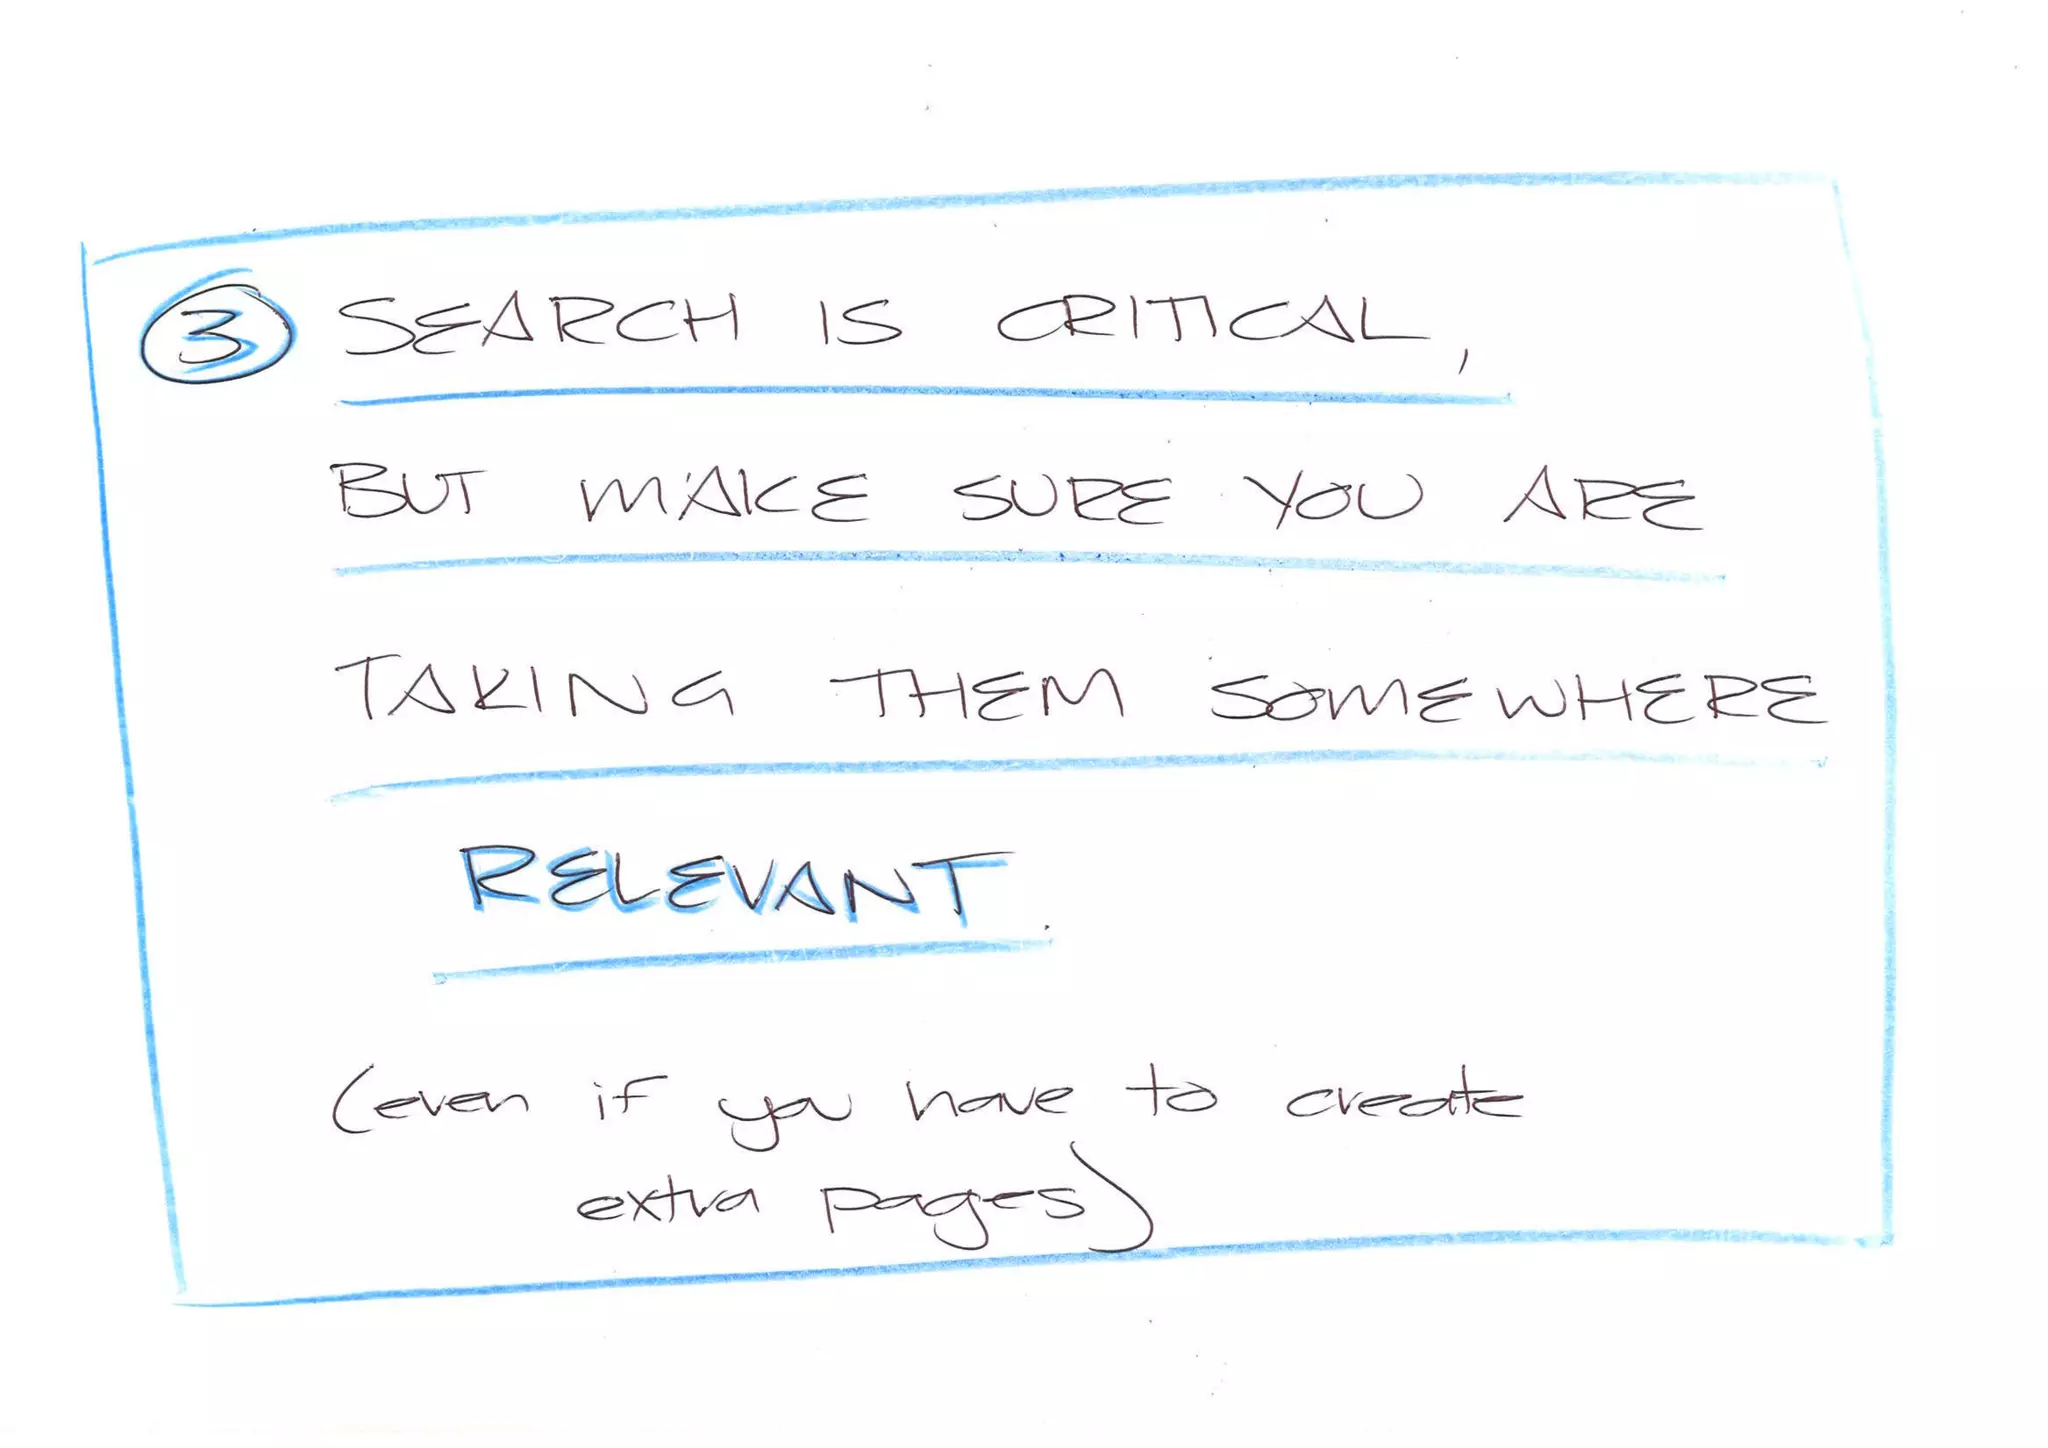 3 SEARCH IS CRITICAL,
BUT MAKE SURE YOU ARE
TAKING THEM SOMEWHERE
RELEVANT.
(even if you have to create
extra pages)